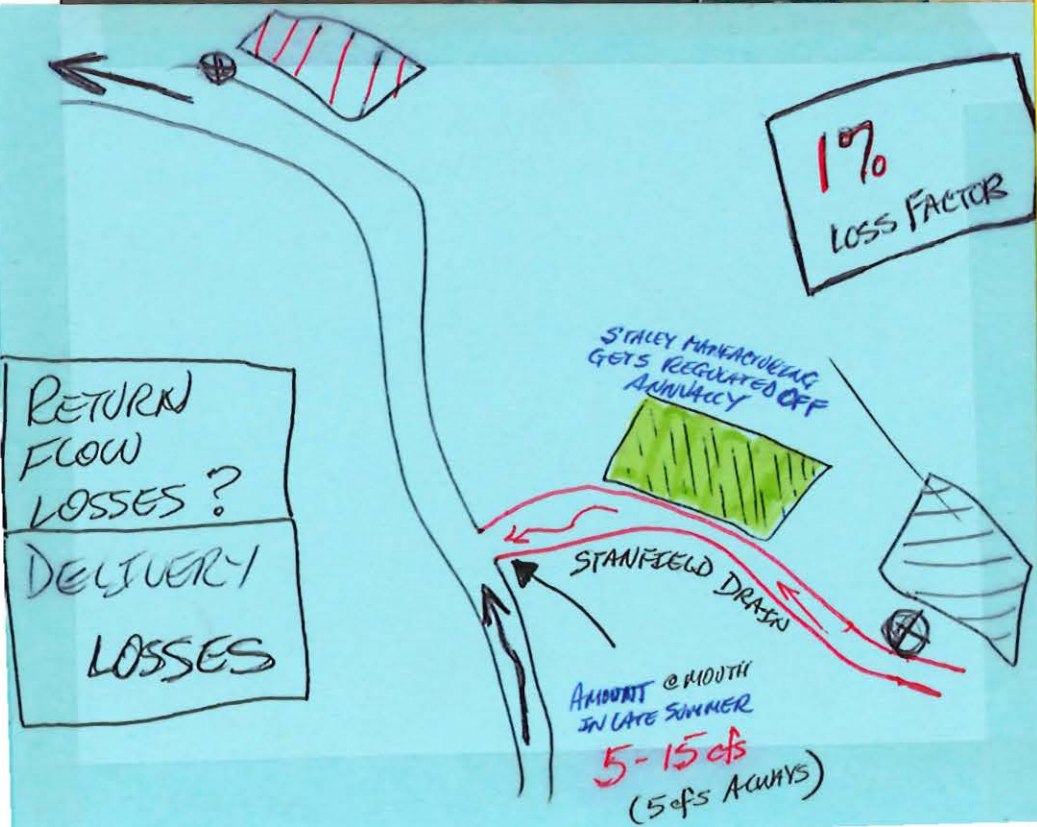 1%
LOSS FACTOR
STALEY MANFACTURING
GETS REGULATED OFF
ANNUALLY
RETURN
FLOW
LOSSES?
DELIVERY
LOSSES
STANFIELD DRAIN
AMOUNT @ MOUTH
IN LATE SUMMER
5-15 cfs
(5 cfs ALWAYS)